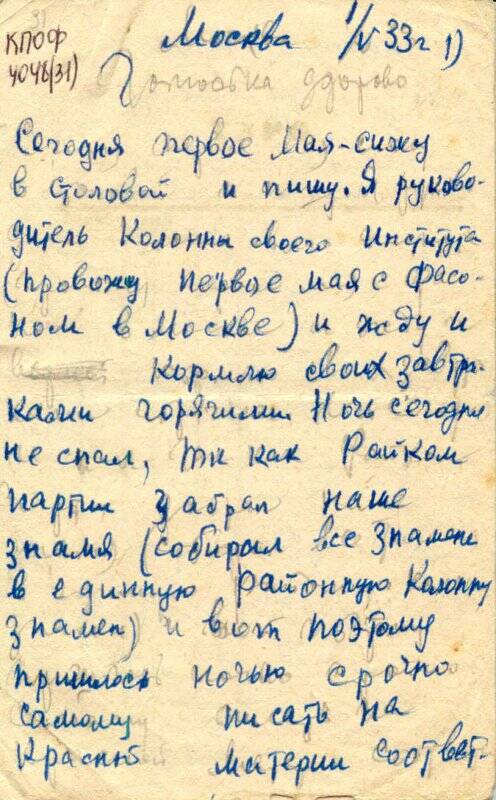 КПОФ
4048(31)
Москва 1/V 33г 1)
здорово
Сегодня первое Мая-сижу
в столовой и пишу. Я руково-
дитель Колонны своего Института
(провожу первое мая с фасо-
ном в Москве) и жду и
кормлю своих завтра-
ками горячими Ночь сегодня
не спал, тк как Райком
партии забрал наше
знамя (собирал все знамена
в единную Районную Колонну
знамен) и вот поэтому
пришлось ночью срочно
самому писать на
Красной материи соответ-